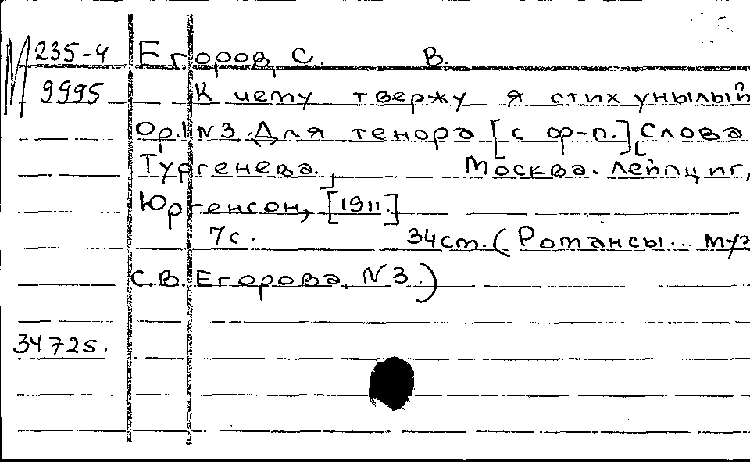 М 235-4 Егоров, С. В.
9995 К чему твержу я стих унылый
Ор.1 N3. Для тенора [с ф-п.] Слова
Тургенева. Москва. Лейпциг,
Юргенсон, [1911.]
7с. 34см. (Романсы... муз
С.В. Егорова. N3.)
34725.